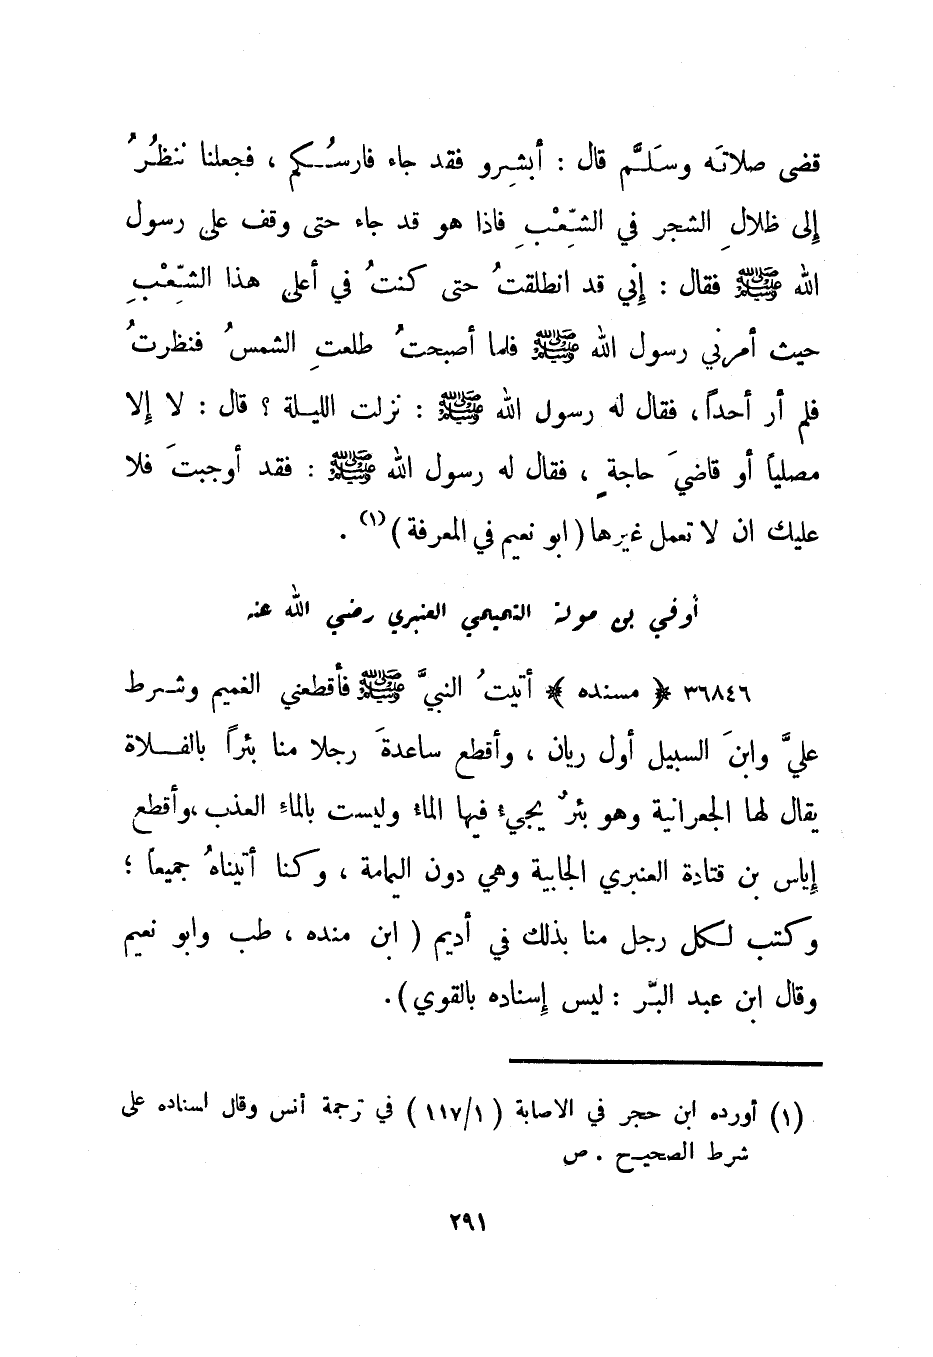 قضى صلاتَه وسَلَّم قال : أبشِرو فقد جاء فارسُكم ، فجعلنا ننظُرُ
إلى ظلالِ الشجر في الشِّعْبِ فاذا هو قد جاء حتى وقف على رسول
الله ﷺ فقال : إني قد انطلقتُ حتى كنتُ في أعلى هذا الشِّعْبِ
حيث أمرني رسول الله ﷺ فلما أصبحتُ طلعتِ الشمسُ فنظرتُ
فلم أر أحداً ، فقال له رسول الله ﷺ : نزلت الليلة ؟ قال : لا إلا
مصلياً أو قاضيَ حاجةٍ ، فقال له رسول الله ﷺ : فقد أوجبتَ فلا
عليك ان لا تعمل غيرها ( ابو نعيم في المعرفة ) (١) .
أوفي بن مولة التميمي العنبري رضي الله عنه
٣٦٨٤٦ ﴿ مسنده ﴾ أتيتُ النبيَّ ﷺ فأقطعني الغميم وشرط
عليَّ وابنَ السبيل أول ريان ، وأقطع ساعدةَ رجلا منا بئراً بالفلاة
يقال لها الجعرانية وهو بئرٌ يجيء فيها الماء وليست بالماء العذب ،وأقطع
إياس بن قتادة العنبري الجابية وهي دون اليمامة ، وكنا أتيناهُ جميعاً ؛
وكتب لكل رجل منا بذلك في أديم ( ابن منده ، طب وابو نعيم
وقال ابن عبد البّر : ليس إسناده بالقوي ) .
(١) أورده ابن حجر في الاصابة ( ١١٧/١ ) في ترجمة أنس وقال اسناده على
شرط الصحيح . ص
٢٩١